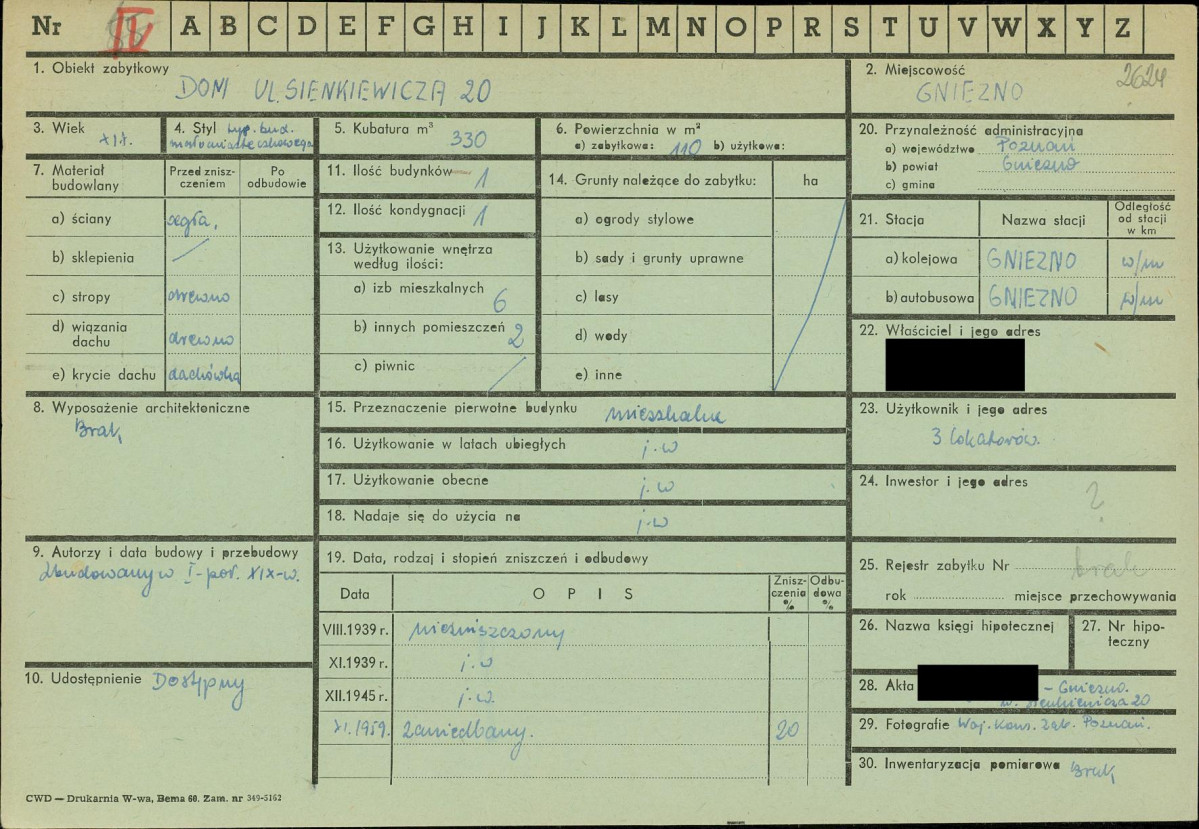 Nr IV A B C D E F G H I J K L M N O P R S T U V W X Y Z
1. Obiekt zabytkowy
DOM UL. SIENKIEWICZA 20
2. Miejscowość
2624
GNIEZNO
3. Wiek
XIX.
4. Styl typ. bud.
małomiasteczkowego
5. Kubatura m³
330
6. Powierzchnia w m²
a) zabytkowa: 110 b) użytkowa:
20. Przynależność administracyjna
a) województwo Poznań
b) powiat Gniezno
c) gmina
7. Materiał
budowlany
Przed znisz-
czeniem
Po
odbudowie
a) ściany cegła,
b) sklepienia
c) stropy drewno
d) wiązania
dachu drewno
e) krycie dachu dachówka
11. Ilość budynków 1
12. Ilość kondygnacji 1
13. Użytkowanie wnętrza
według ilości:
a) izb mieszkalnych 6
b) innych pomieszczeń 2
c) piwnic
14. Grunty należące do zabytku: ha
a) ogrody stylowe
b) sady i grunty uprawne
c) lasy
d) wody
e) inne
21. Stacja Nazwa stacji
Odległość
od stacji
w km
a) kolejowa GNIEZNO w/m
b) autobusowa GNIEZNO w/m
22. Właściciel i jego adres
8. Wyposażenie architektoniczne
Brak
15. Przeznaczenie pierwotne budynku mieszkalne
16. Użytkowanie w latach ubiegłych j.w
17. Użytkowanie obecne j.w
18. Nadaje się do użycia na j.w
23. Użytkownik i jego adres
3 lokatorów.
24. Inwestor i jego adres
?
9. Autorzy i data budowy i przebudowy
Zbudowany w I-poł. XIX-w.
19. Data, rodzaj i stopień zniszczeń i odbudowy
Data OPIS
Znisz-
czenia
%
Odbu-
dowa
%
VIII.1939 r. niezniszczony
XI.1939 r. j.w
XII.1945 r. j.w.
XI.1959. Zaniedbany. 20
25. Rejestr zabytku Nr brak
rok miejsce przechowywania
26. Nazwa księgi hipotecznej
27. Nr hipo-
teczny
10. Udostępnienie Dostępny
28. Akta – Gniezno.
Sienkiewicza 20
29. Fotografie Woj. Kons. Zab. Poznań.
30. Inwentaryzacja pomiarowa Brak
CWD — Drukarnia W-wa, Bema 60. Zam. nr 349-5162